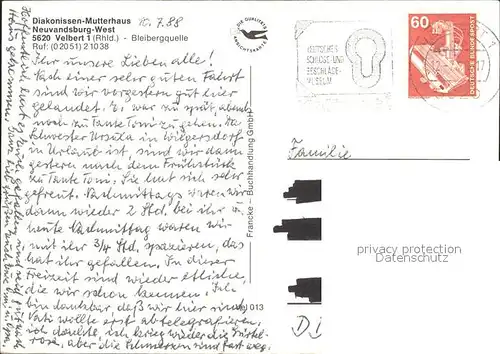 Diakonissen-Mutterhaus
Neuvandsburg-West
5620 Velbert 1 (Rhld.) - Bleibergquelle
Ruf: (02051) 21038
10.7.88
DIE QUALITÄTS
DEUTSCHES
SCHLOSS- UND
BESCHLÄGE-
MUSEUM
60
DEUTSCHE BUNDESPOST
Ihr unsere Lieben alle!
Nach sehr guten Fahrt
sind wir vorgestern gut hier
gelandet. Es war zu spät, abends
noch zu Tante Toni zu gehen. Da
Schwester Ursula in Wiegersdorf
in Urlaub ist, sind wir dann
gestern nach dem Frühstück
zu Tante Toni. Sie hat sich sehr
gefreut. Nachmittags waren wir
dann wieder 2 Std. bei ihr u.
heute Nachmittag waren wir
mit ihr 3/4 Std. spazieren, das
hat ihr gefallen. In dieser
Freizeit sind wieder etliche,
die wir schon kennen. Ich
bin dankbar, daß wir hier sind.
Vati wollte erst abtelegrafieren,
ich dachte, ich kriege wieder die Gürtel-
rose, aber die Schmerzen sind fast weg.
Francke - Buchhandlung GmbH
013
Familie
privacy protection
Datenschutz
Di